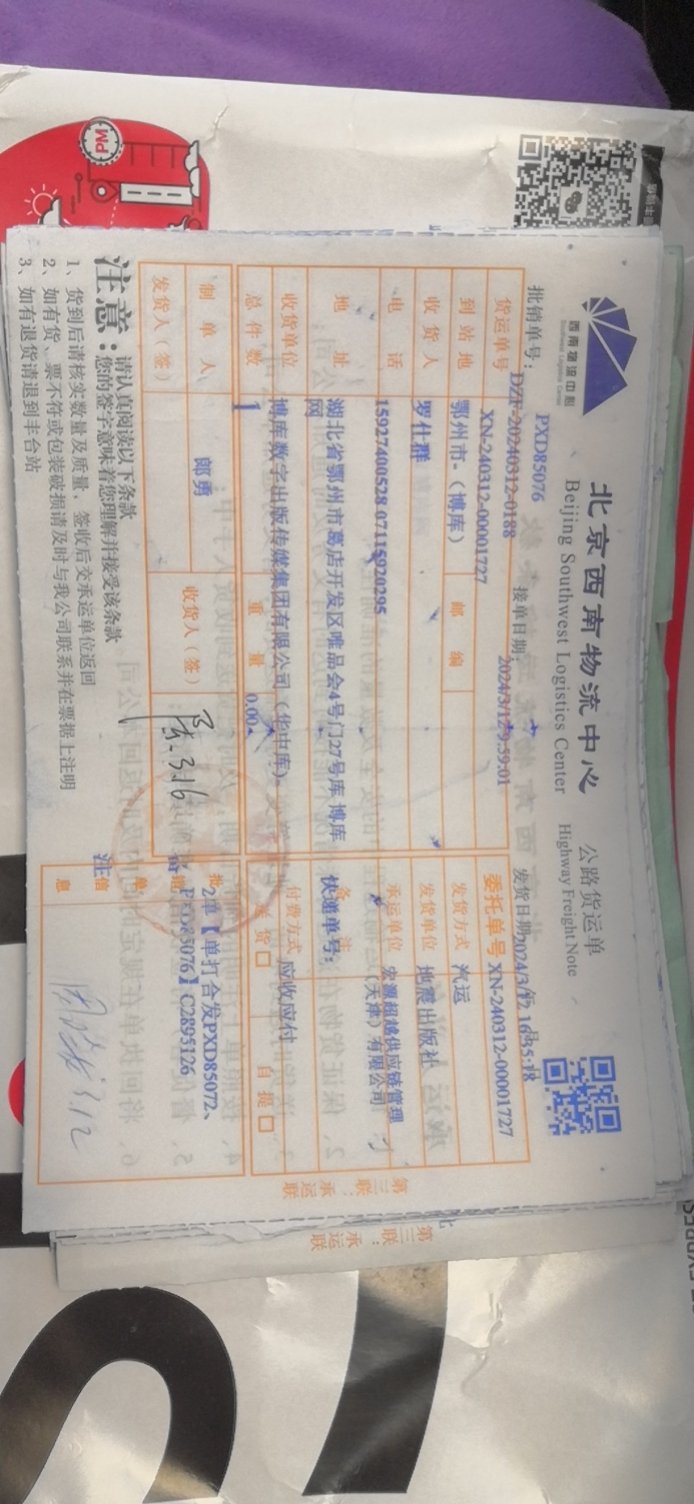 西南物流中心
Southwest Logistics Center
北京西南物流中心
Beijing Southwest Logistics Center
公路货运单
Highway Freight Note
批销单号：
PXD85076
DZF-20240312-0188
接单日期
2024/3/12 9:59:01
发货日期
货运单号
XN-240312-00001727
委托单号 XN-240312-00001727
到站地
鄂州市-（博库）
邮 编
发货方式
汽运
收货人
罗仕群
发货单位
地震出版社
电 话
15927400528 07115920295
承运单位
宏源超越供应链管理（天津）有限公司
地 址
湖北省鄂州市葛店开发区唯品会4号门27号库 博库网
备 注
快递单号：
收货单位
博库数字出版传媒集团有限公司（华中库）
付费方式
应收应付
总件数
1
重 量
0.00
送 货 □
自 提 □
制单人
郎勇
收货人（签）
3.16
发货人（签）
批销单信息
2单【单打合发PXD85072、PXD85076】C2895126
注
3.12
注意：
请认真阅读以下条款
您的签字意味着您理解并接受该条款
1、货到后请核实数量及质量，签收后交承运单位返回
2、如有货、票不符或包装破损请及时与我公司联系并在票据上注明
3、如有退货请退到丰台站
第三联：承运联
第三联：承运联
PM